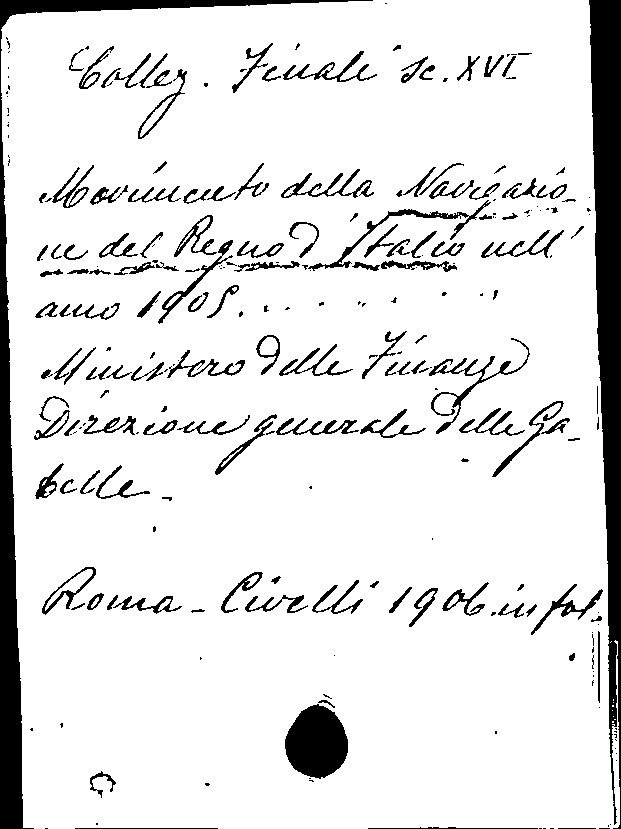 Collez. Finali sc. XVI
Movimento della Navigazio-
ne del Regno d'Italia nell'
anno 1905. . . . . . . . .
Ministero delle Finanze
Direzione generale delle Ga-
belle -
Roma - Civelli 1906. in fol.